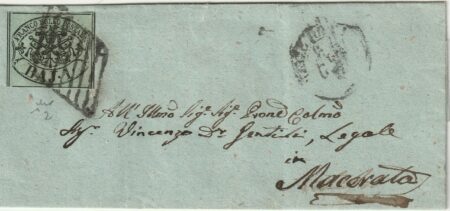 FRANCO BOLLO POSTALE
BAJ. 1
All' Illmo Sig.r Sig.r Prone Colmo
Sig.r Vincenzo Dr Gentili, Legale
in
Macerata